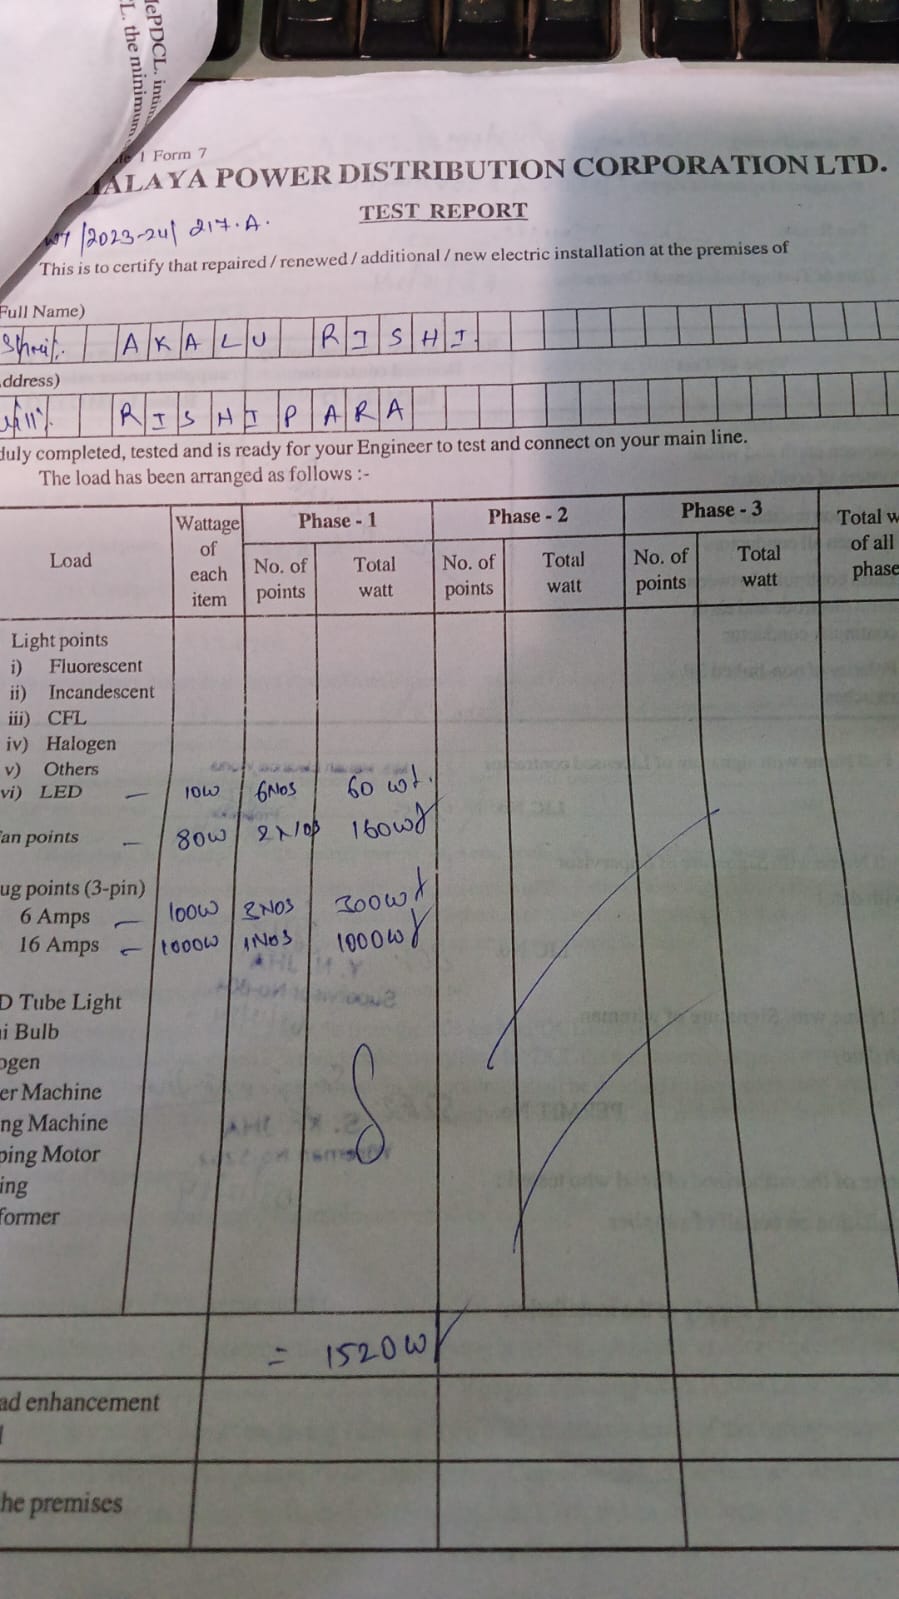 lePDCL. intim
CL. the minimum
1 Form 7
ALAYA POWER DISTRIBUTION CORPORATION LTD.
TEST REPORT
/2023-24/ 217.A.
This is to certify that repaired / renewed / additional / new electric installation at the premises of
Full Name)
AKALU RISHI.
ddress)
RISHI PARA
duly completed, tested and is ready for your Engineer to test and connect on your main line.
The load has been arranged as follows :-
Load Wattage of each item Phase - 1 Phase - 2 Phase - 3 Total w of all phase
No. of points Total watt No. of points Total watt No. of points Total watt
Light points
i) Fluorescent
ii) Incandescent
iii) CFL
iv) Halogen
v) Others
vi) LED — 10W 6NOS 60 wt.
an points — 80W 2NOS 160wt
ug points (3-pin)
6 Amps — 100W 3NOS 300wt
16 Amps — 1000W 1NOS 1000wt
D Tube Light
i Bulb
ogen
er Machine
ng Machine
ping Motor
ing
former
= 1520W
ad enhancement
he premises